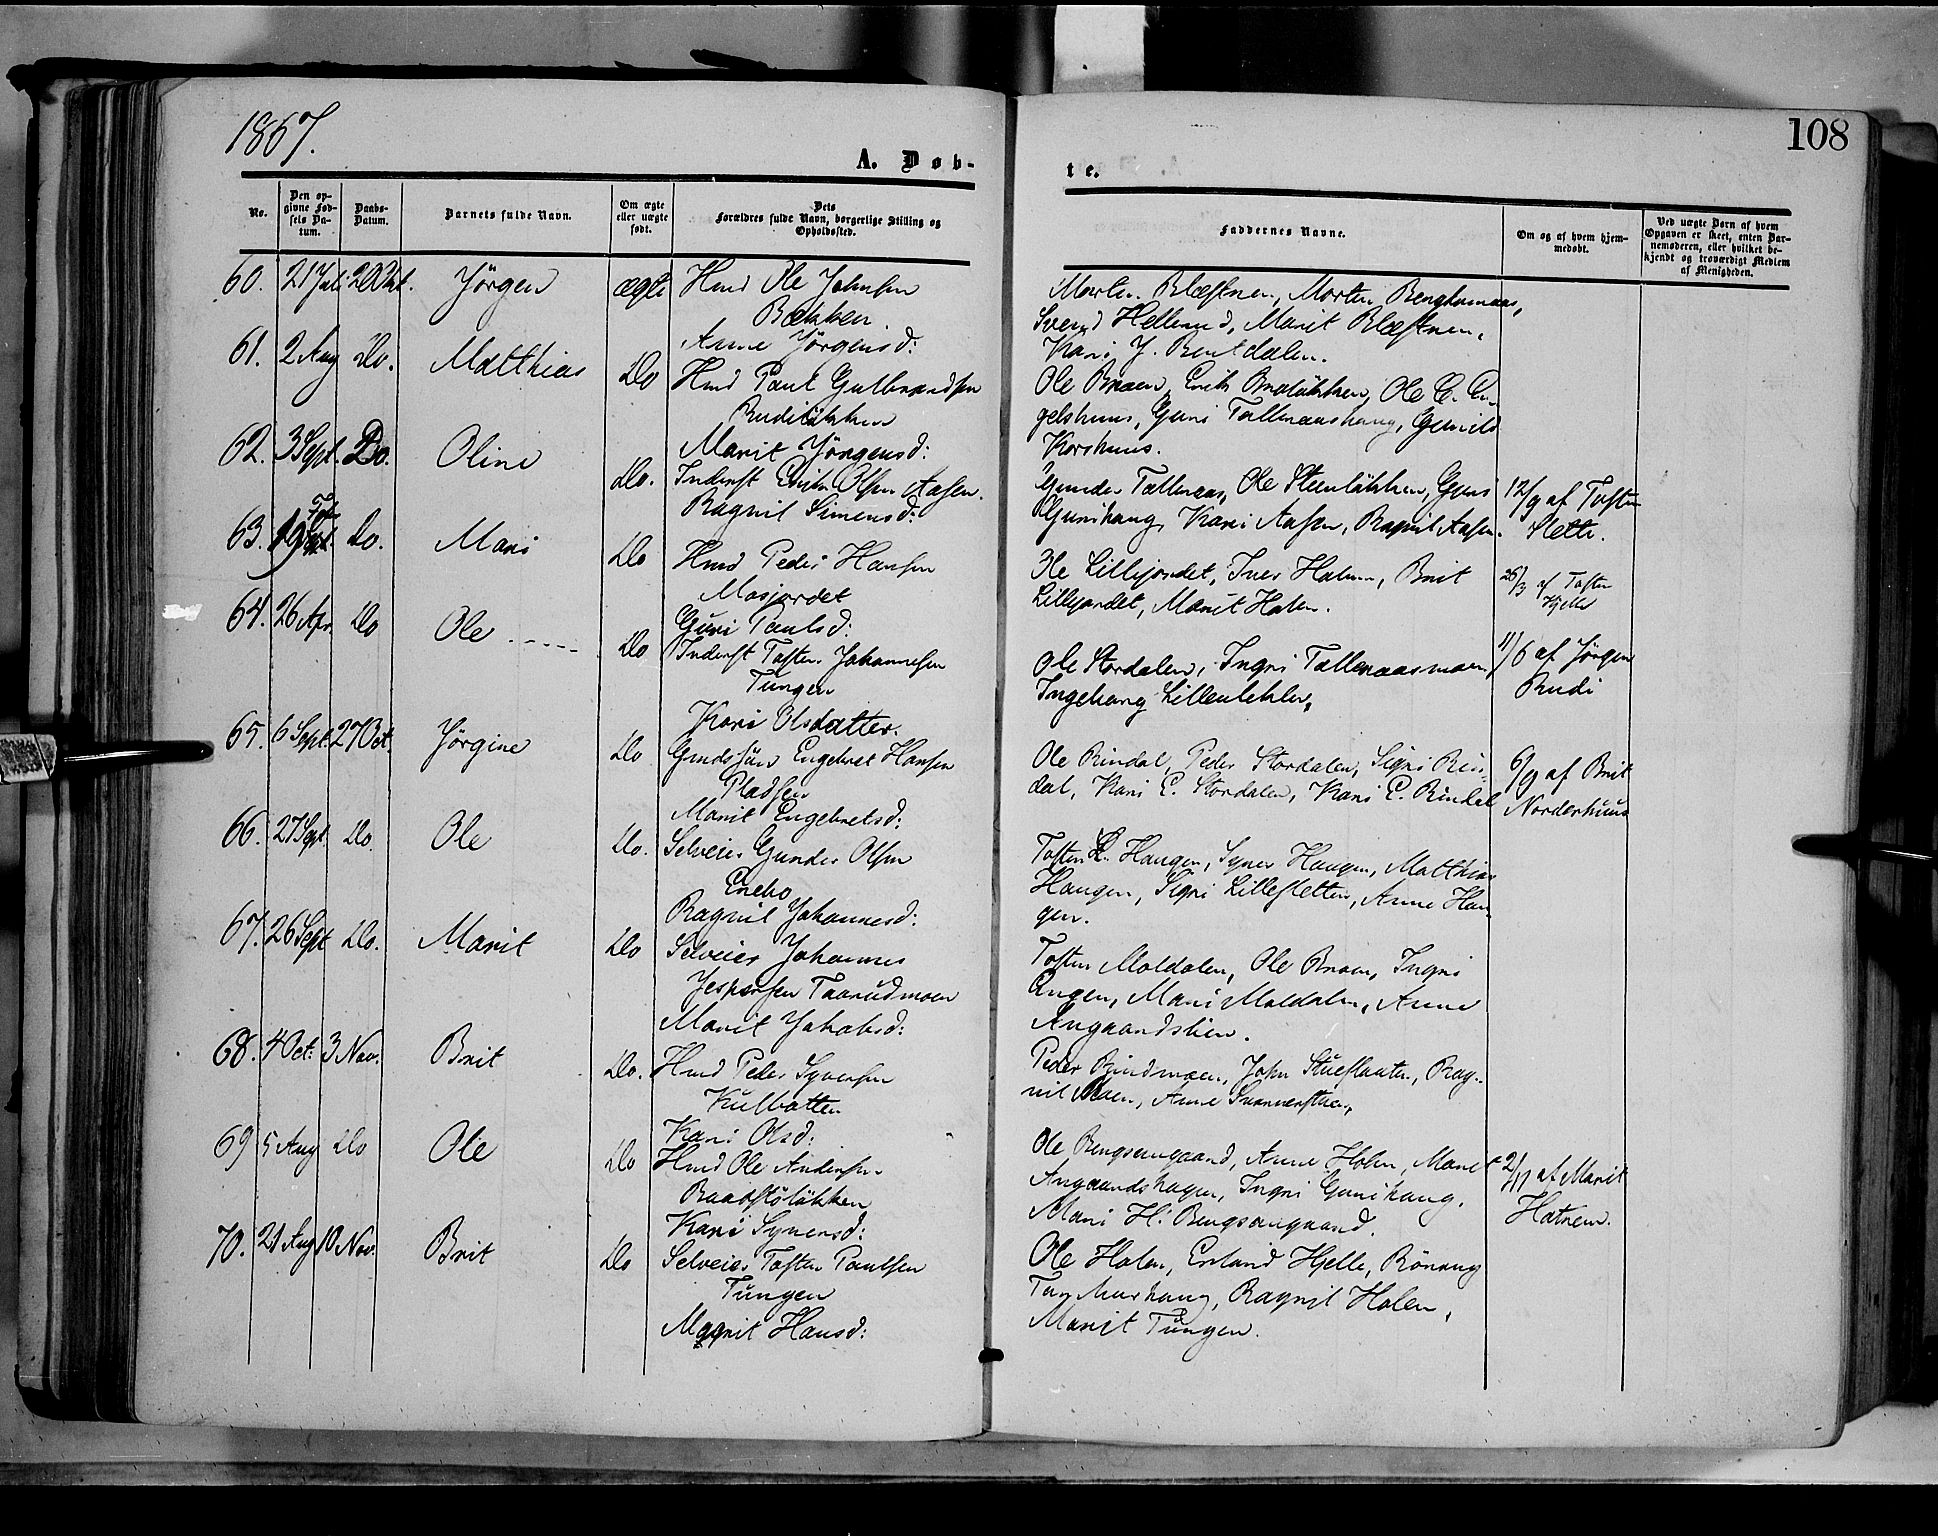 1867.
108
A. Døb-
te.
No.
Den opgivne Fødsels Datum.
Daabs-Datum.
Barnets fulde Navn.
Om ægte eller uægte født.
Dets Forældres fulde Navn, borgerlige Stilling og Opholdssted.
Faddernes Navne.
Om og af hvem hjemmedøbt.
Ved uægte Børn af hvem Opgaven er skeet, enten Barnemoderen, eller hvilket bekjendt og troværdigt Medlem af Menigheden.
60. 21 Jul. 20 Oct. Jörgen ægte Hmd Ole Johnsen
Bækken.
Anne Jörgensd:
Morten Blæstren, Morten
Svend Hellerud, Marit Blæstren,
Kari J. Bentdalen.
61. 2 Aug Do. Matthias Do Hmd Paul Gulbrandsen
Rudilökken
Marit Jörgensd:
Ole Braen, Erik Braløkken, Ole C. En-
gelshuus, Guri Talleraashaug, Gunild
Korshuus.
62. 3 Sept. Do. Oline Do. Inderst Erik Olsen Aasen.
Ragnil Simensd:
Gunder Talleraas, Ole Steenlökken, Guri
Gunihaug, Kari Aasen, Ragnil Aasen.
12/9 af Tosten
Slette.
63. 19 Feb Do. Mari Do Hmd Peder Hansen
Mosjordet
Guri Paulsd:
Ole Lillejordet, Iver Holen, Brit
Lillejordet, Marit Holen.
26/3 af Tosten
Hjelle
64. 26 Apr. Do Ole Do Inderst Tosten Johannesen
Tungen
Kari Olsdatter.
Ole Stordalen, Ingri Talleraasmoen,
Ingeborg
11/6 af Jörgen
Rudi
65. 6 Sept. 27 Oct. Jörgine Do Grudssön Engebret Hansen
Pladsen
Marit Engebretsd:
Ole Rindal, Peder Stordalen, Sigri Rin-
dal, Kari E. Stordalen, Kari E. Rindal
6/9 af Brit
Norderhuus
66. 27 Sept. Do. Ole Do. Selveier Gunder Olsen
Enebo
Ragnil Johannesd:
Tosten H. Haugen, Syver Haugen, Matthias
Haugen, Sigri Lilleslette, Anne Hau-
gen.
67. 26 Sept Do. Marit Do Selveier Johannes
Jespersen Taarudmoen
Marit Jakobsd:
Tosten Moldalen, Ole Braen, Ingri
Engen, Mari Moldalen, Anne
Angaardslien.
68. 4 Oct. 3 Nov. Brit Do. Hmd Peder Syversen
Kulbotten
Kari Olsd:
Peder Rudmoen, John Stueflaaten, Rag-
nil Moen, Anne
69 5 Aug Do Ole Do Hmd Ole Andersen
Baadstölökken
Kari Syversd:
Ole Bengsangaard, Anne Holen, Marit
Angaardshagen, Ingri Gunihaug,
Mari H. Bengsangaard.
2/11 af Marit
Hatrem.
70. 21 Aug 10 Nov. Brit Do Selveier Tosten Paulsen
Tungen
Magnit Hansd:
Ole Holen, Erland Hjelle, Rönnaug
Ragnil Holen,
Marit Tungen.